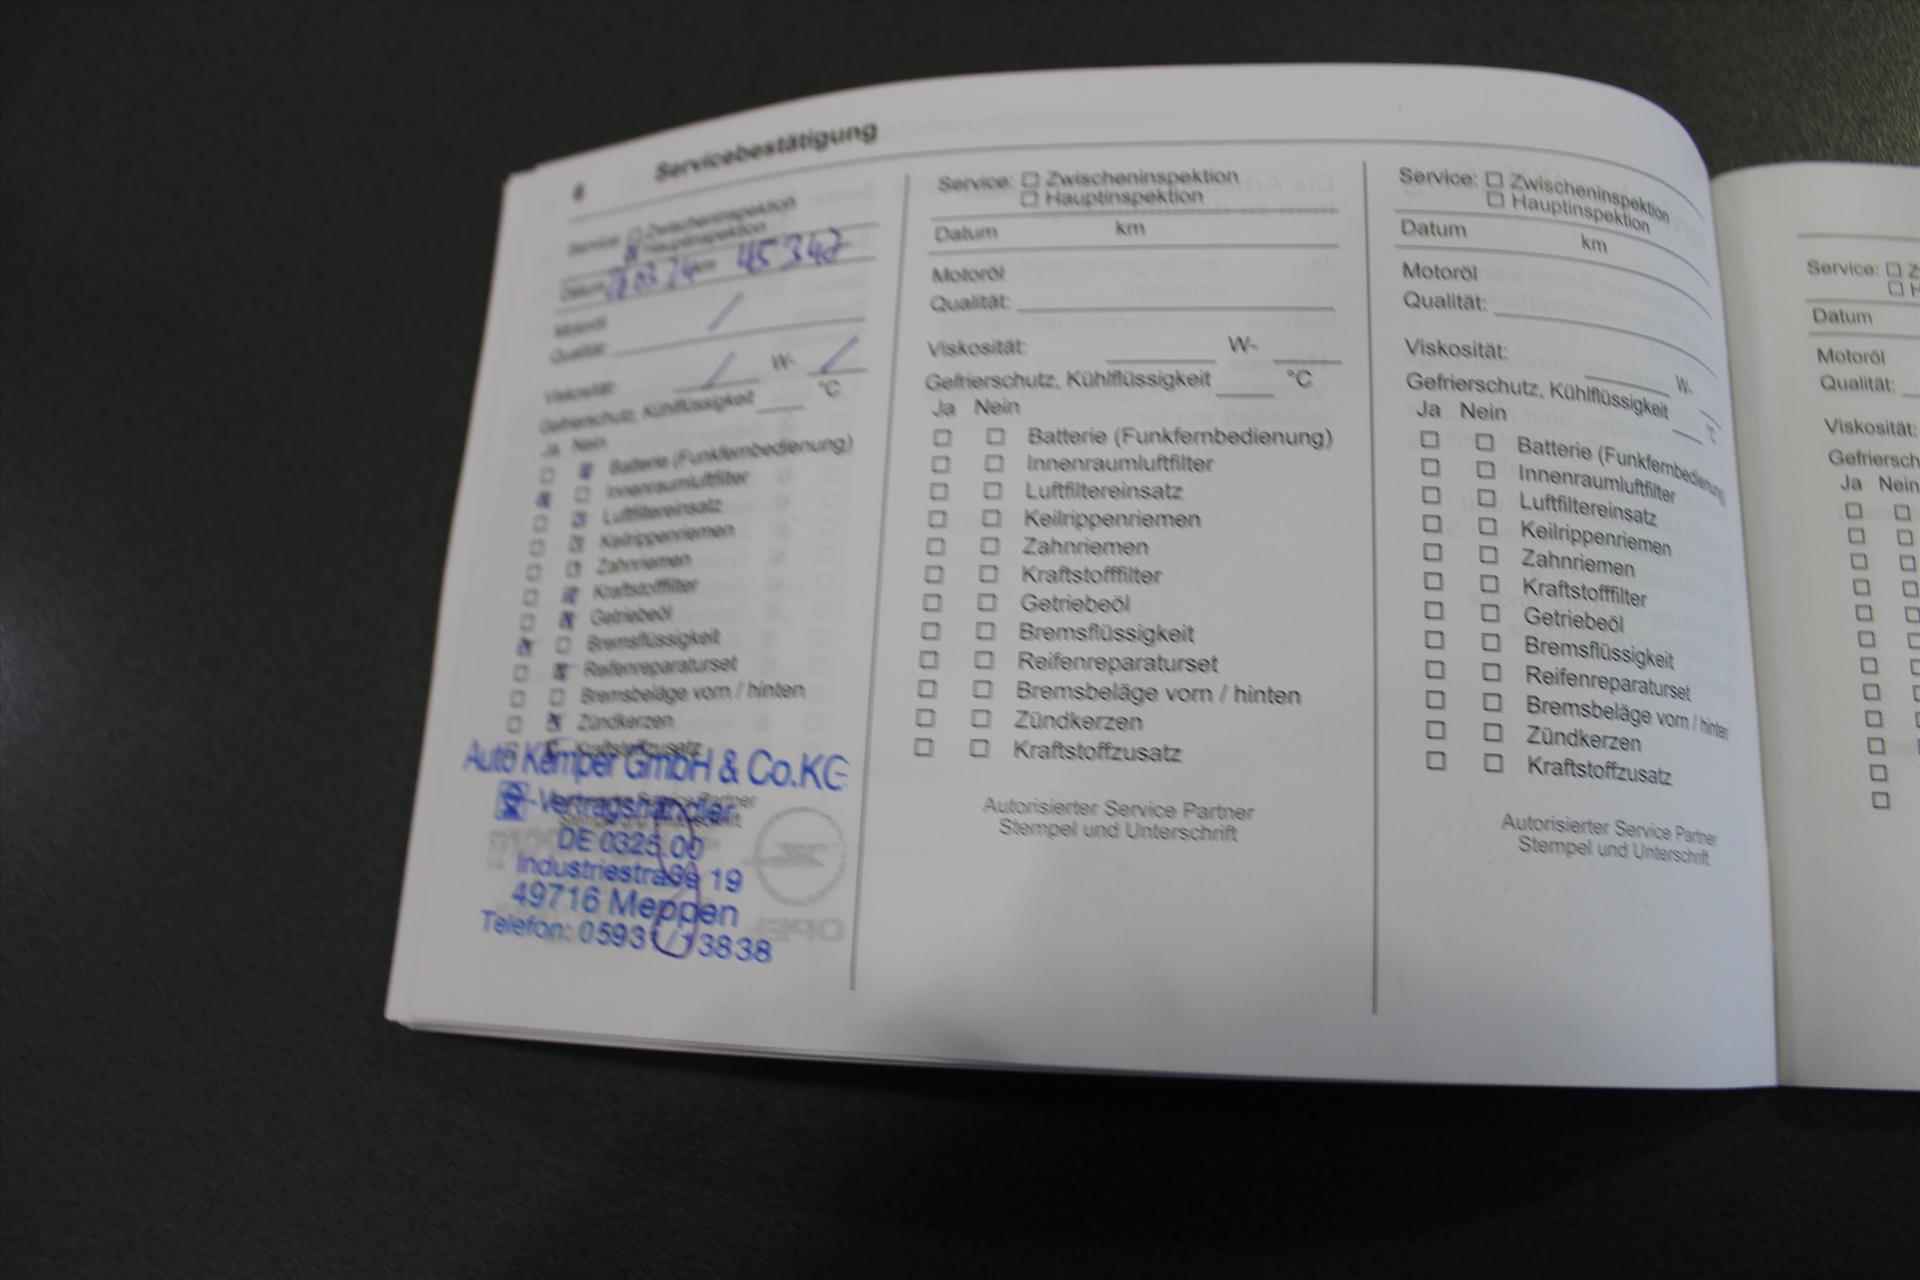 6 Servicebestätigung
Service: Zwischeninspektion
Hauptinspektion
Datum 03 24 km 45 342
Motoröl
Qualität:
Viskosität: W-
Gefrierschutz, Kühlflüssigkeit °C
Ja Nein
Batterie (Funkfernbedienung)
Innenraumluftfilter
Luftfiltereinsatz
Keilrippenriemen
Zahnriemen
Kraftstofffilter
Getriebeöl
Bremsflüssigkeit
Reifenreparaturset
Bremsbeläge vorn / hinten
Zündkerzen
Kraftstoffzusatz
Auto Kemper GmbH & Co.KG
-Vertragshändler
DE 0325 00
Industriestraße 19
49716 Meppen
Telefon: 05931/13838
OPEL
Service: Zwischeninspektion
Hauptinspektion
Datum km
Motoröl
Qualität:
Viskosität: W-
Gefrierschutz, Kühlflüssigkeit °C
Ja Nein
Batterie (Funkfernbedienung)
Innenraumluftfilter
Luftfiltereinsatz
Keilrippenriemen
Zahnriemen
Kraftstofffilter
Getriebeöl
Bremsflüssigkeit
Reifenreparaturset
Bremsbeläge vorn / hinten
Zündkerzen
Kraftstoffzusatz
Autorisierter Service Partner
Stempel und Unterschrift
Service: Zwischeninspektion
Hauptinspektion
Datum km
Motoröl
Qualität:
Viskosität: W-
Gefrierschutz, Kühlflüssigkeit °C
Ja Nein
Batterie (Funkfernbedienung
Innenraumluftfilter
Luftfiltereinsatz
Keilrippenriemen
Zahnriemen
Kraftstofffilter
Getriebeöl
Bremsflüssigkeit
Reifenreparaturset
Bremsbeläge vorn / hinten
Zündkerzen
Kraftstoffzusatz
Autorisierter Service Partner
Stempel und Unterschrift
Service: Z
H
Datum
Motoröl
Qualität:
Viskosität:
Gefriersch
Ja Nein